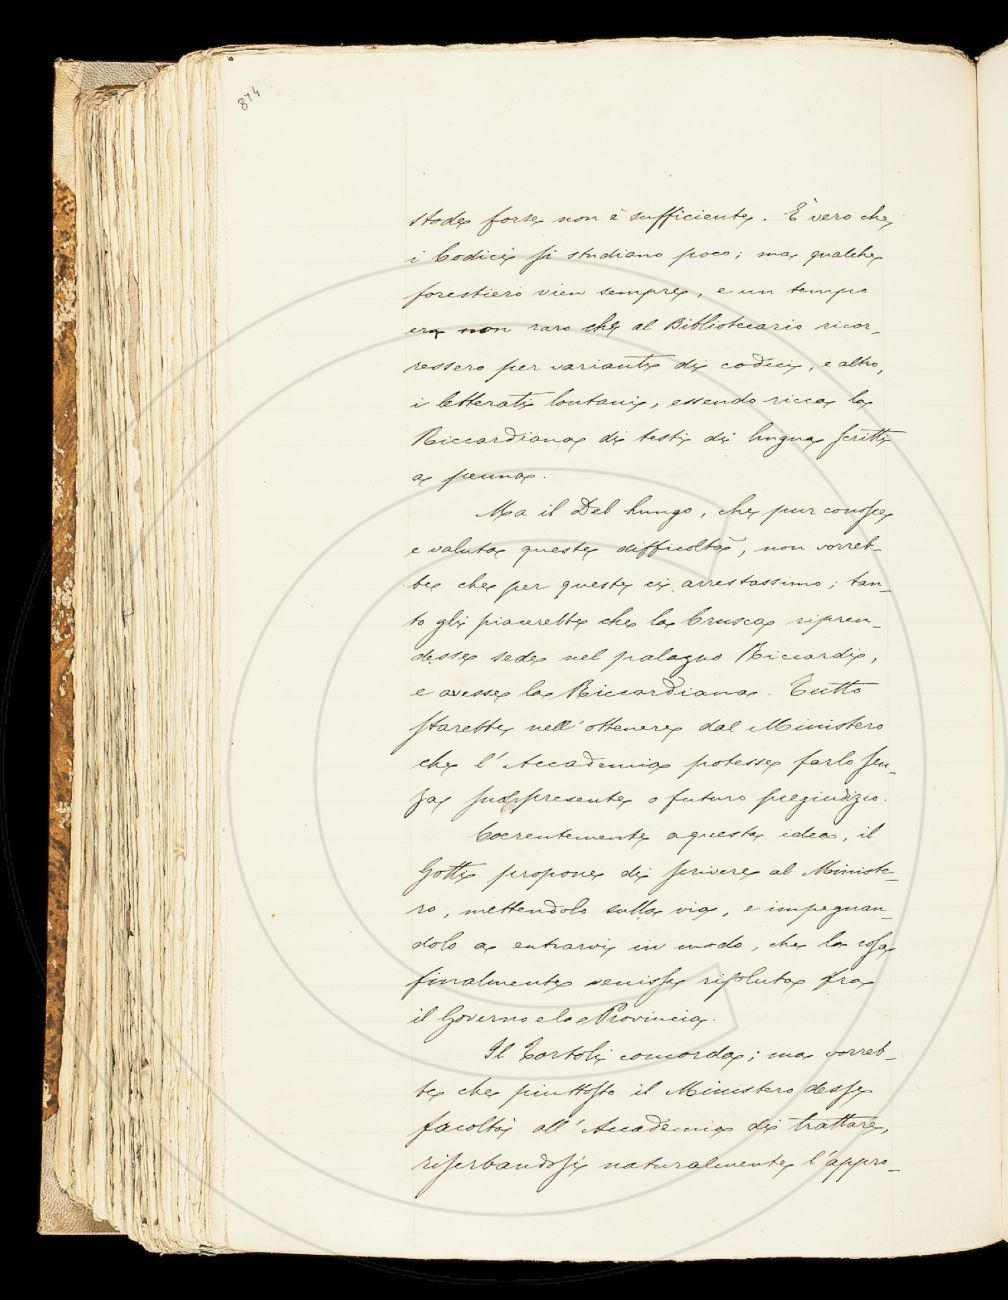 874
stode forse non è sufficiente. È vero che
i Codici si studiano poco; ma qualche
forestiero vien sempre, e un tempo
era non raro che al Bibliotecario ricor-
ressero per varianti di codici, e altro,
i letterati lontani, essendo ricca la
Riccardiana di testi di lingua scritti
a penna.
Ma il Del Lungo, che pur conosce
e valuta queste difficoltà, non vorreb-
be che per queste ci arrestassimo; tan-
to gli piacerebbe che la Crusca ripren-
desse sede nel palazzo Riccardi,
e avesse la Riccardiana. Tutto
starebbe nell'ottenere dal Ministero
che l'Accademia potesse farlo sen-
za suo presente o futuro pregiudizio.
Coerentemente a questa idea, il
Gotti propone di scrivere al Ministe-
ro, mettendolo sulla via, e impegnan-
dolo a entrarvi in modo, che la cosa
finalmente venisse risoluta fra
il Governo e la Provincia.
Il Tortoli concorda; ma vorreb-
be che piuttosto il Ministero desse
facoltà all'Accademia di trattare,
riserbandosi naturalmente l'appro-